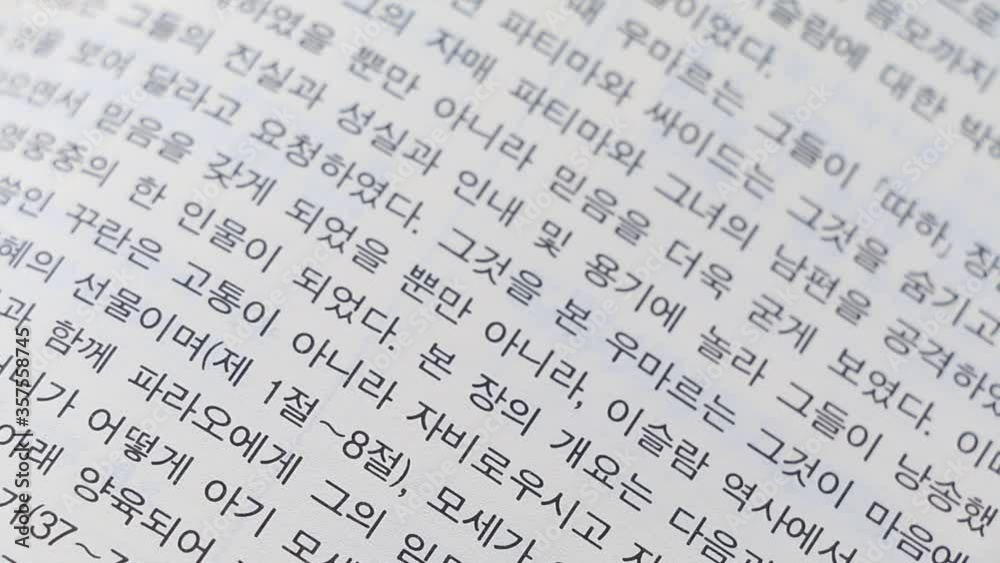 음모까지
슬람에 대한 박해
들이었다.
때 우마르는 그들이 「따하」 장
파티마와 싸이드는 그것을 숨기고
그의 자매 파티마와 그녀의 남편을 공격하였
하였을 뿐만 아니라 믿음을 더욱 굳게 보였다. 이때
그들의 진실과 성실과 인내 및 용기에 놀라 그들이 낭송했
을 보여 달라고 요청하였다. 그것을 본 우마르는 그것이 마음에
으면서 믿음을 갖게 되었을 뿐만 아니라, 이슬람 역사에서
영웅중의 한 인물이 되었다. 본 장의 개요는 다음과
쓸인 꾸란은 고통이 아니라 자비로우시고 자
혜의 선물이며(제 1절 ~8절), 모세가
과 함께 파라오에게 그의 임무
가 어떻게 아기 모세
아래 양육되어
(37~7
Adobe Stock | #357558745